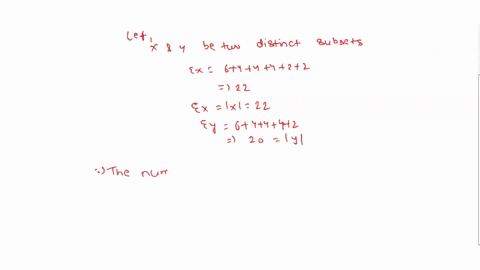 Let,
x & y be two distinct subsets
Ex = 6+4+4+4+2+2
=> 22
Ex = |x| = 22
Ey = 6+4+4+4+2
=> 20 = |y|
=> The num